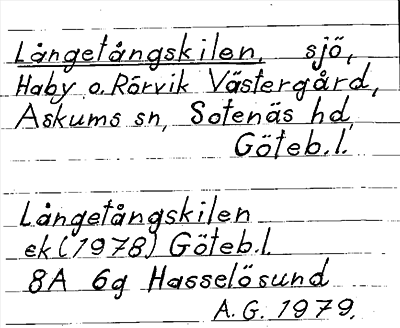 Långetångskilen, sjö,
Haby o. Rörvik Västergård,
Askums sn, Sotenäs hd,
Göteb.l.
Långetångskilen
ek (1978) Göteb.l.
8A 6g Hasselösund
A.G. 1979.